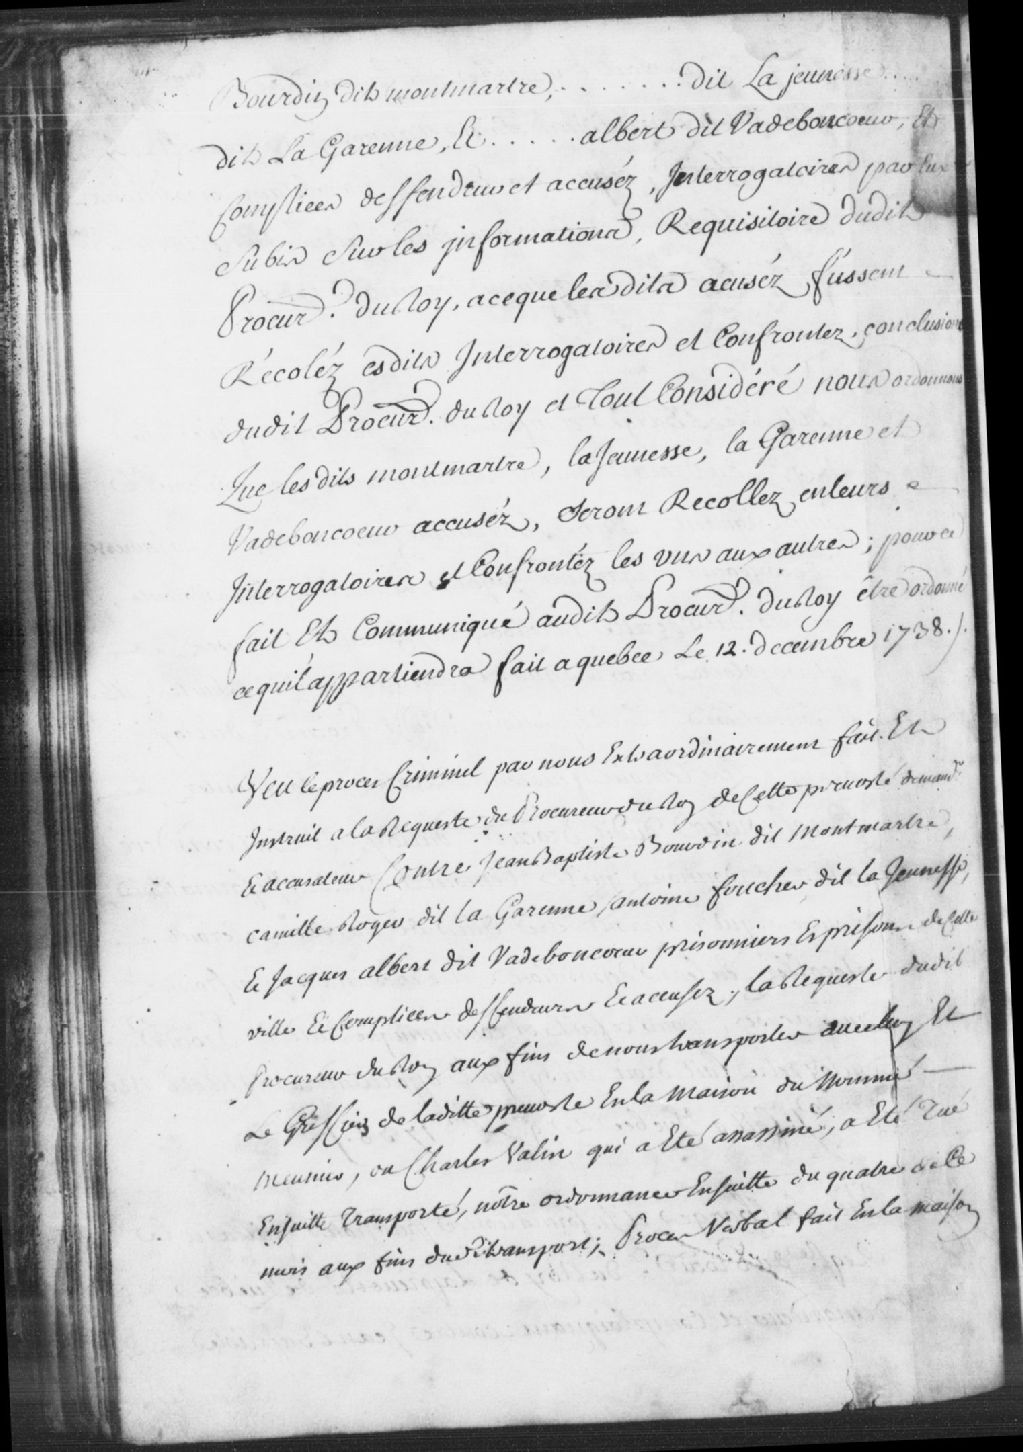 Bourdin dit montmartre, . . . . . . . dit La jeunesse . . . .
dit La Garenne, Et . . . . . albert dit Vadeboncoeur, Et
Complices deffendeurs et accuséz, Interrogatoires par Eux
Subis Sur les jnformations, Requisitoire dudit
Procur.r du Roy, a ce que les dits acuséz fussent
Récoléz esdits Interrogatoires et Confrontez, conclusions
dudit Procur.r du Roy et Tout Considéré nous ordonnons
Que les dits montmartre, la Jeunesse, la Garenne et
Vadeboncoeur accuséz, Seront Recollez en leurs
Interrogatoires et Confrontéz les uns aux autres ; pour ce
fait Et Communiqué audit Procur.r du Roy être ordonné
ce quil appartiendra fait a quebec Le 12. decembre 1738.
Veu le proces Criminel par nous Extraordinairement fait Et
Instruit a la Requeste du Procureur du Roy de Cette prevosté demand.r
Et accusateur Contre Jean Baptiste Bourdin dit Montmartre,
camille Roger dit la Garenne, antoine foucher dit la Jeunesse,
Et Jacques albert dit Vadeboncoeur prisonniers Es prisons de Cette
ville Et Complices deffendeurs Et accusez, la Requeste dudit
Procureur du Roy aux fins de nous transporter avec luy Et
Le Greffier de laditte prevosté En la Maison du Nommé
Meunier, ou Charles Valin qui a Eté assassiné, a Eté Tué
Ensuitte Transporté, nôtre ordonnance Ensuitte du quatre de Ce
mois aux fins dud. transport ; Procès Verbal fait En la maison